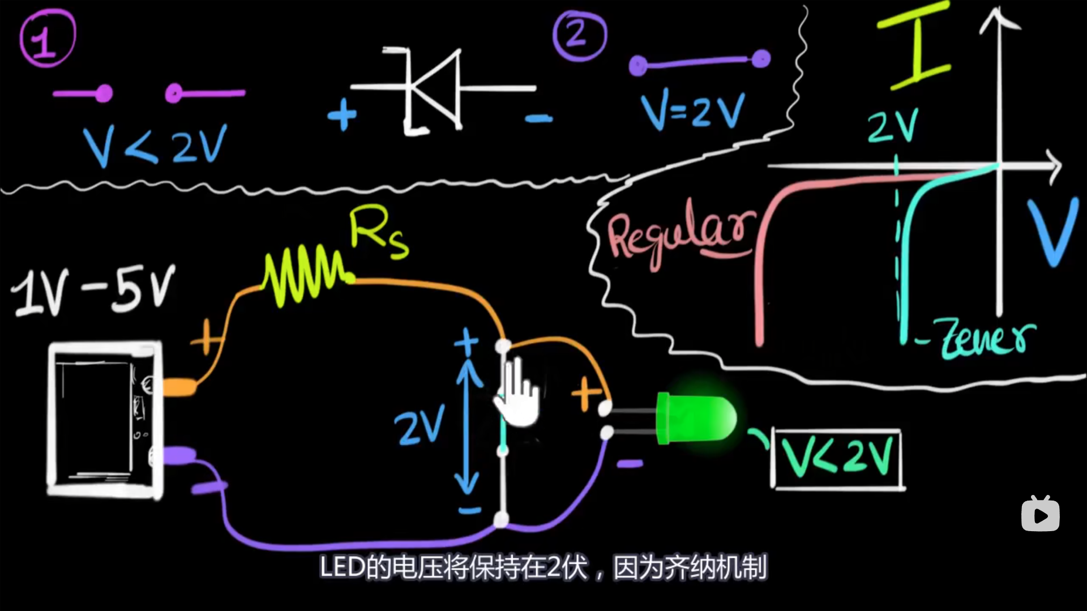 1
V < 2V
+
-
2
V=2V
I
2V
V
Regular
-Zener
Rs
1V-5V
+
+
2V
-
+
-
-
V<2V
LED的电压将保持在2伏，因为齐纳机制